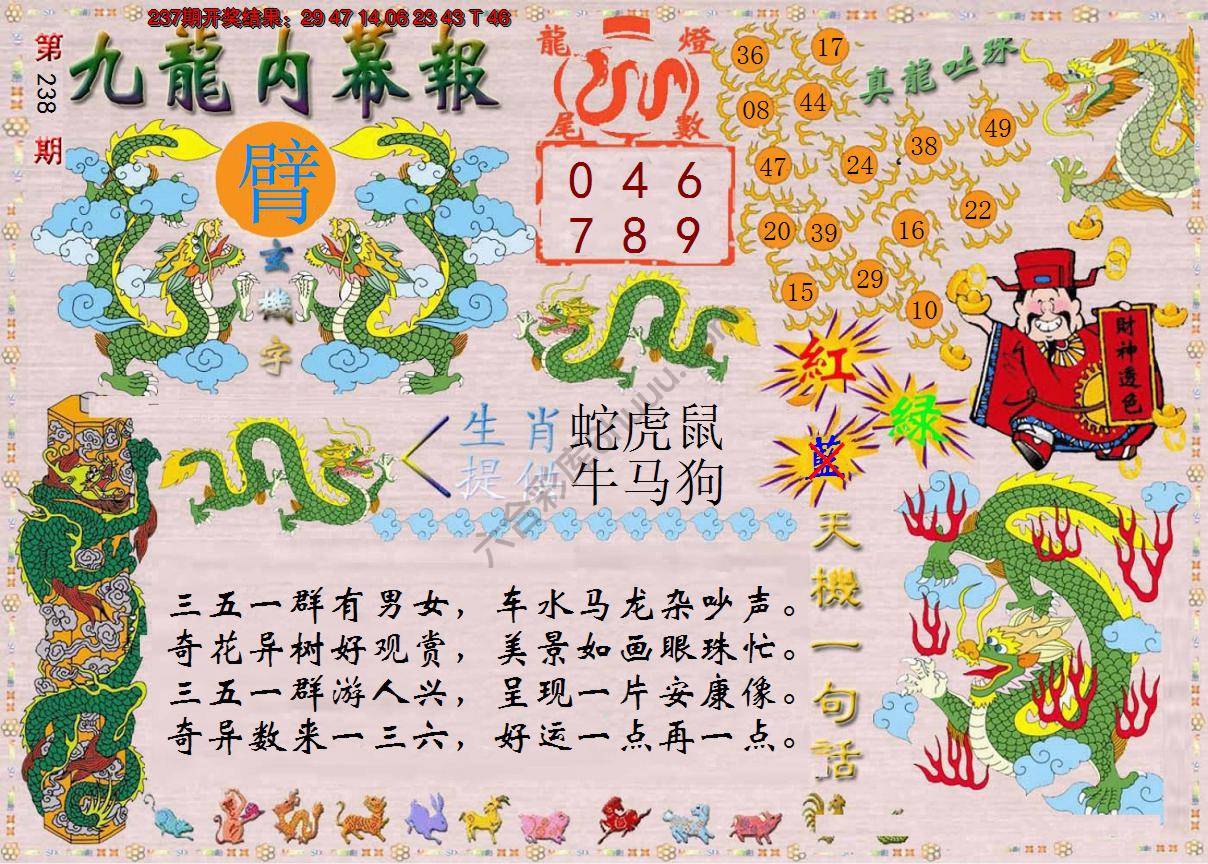 237期开奖结果：29 47 14 06 23 43 T 46
第238期
九龍内幕報
臂
玄機字
龍燈尾數
0 4 6
7 8 9
真龍吐珠
36 17
08 44
47 24 38 49
20 39 16 22
15 29 10
財神透色
紅
綠
藍
生肖 蛇虎鼠
提供 牛马狗
天機一句話
三五一群有男女，车水马龙杂吵声。
奇花异树好观赏，美景如画眼珠忙。
三五一群游人兴，呈现一片安康像。
奇异数来一三六，好运一点再一点。
六合彩库